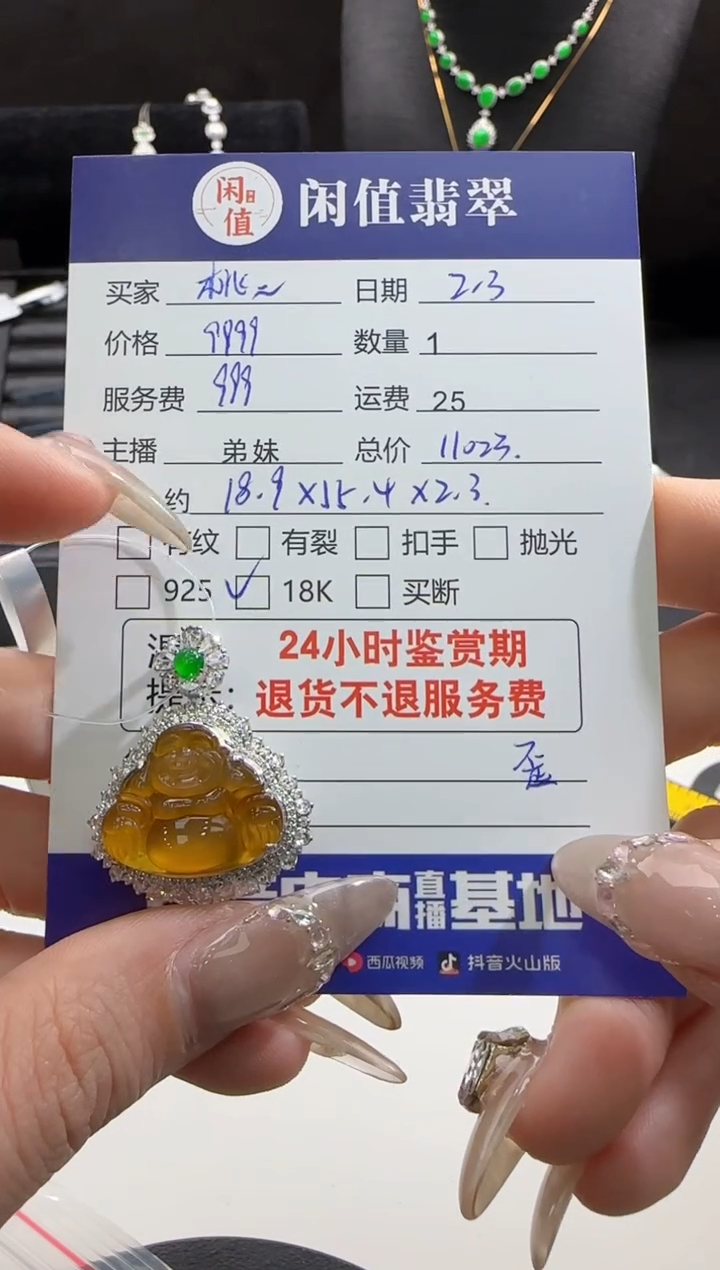 闲值
闲值翡翠
买家 桃二 日期 2.3
价格 9999 数量 1
服务费 999 运费 25
主播 弟妹 总价 11023.
约 18.9×15.4×2.3.
有纹 有裂 扣手 抛光
925 18K 买断
24小时鉴赏期
退货不退服务费
直播基地
西瓜视频 抖音火山版